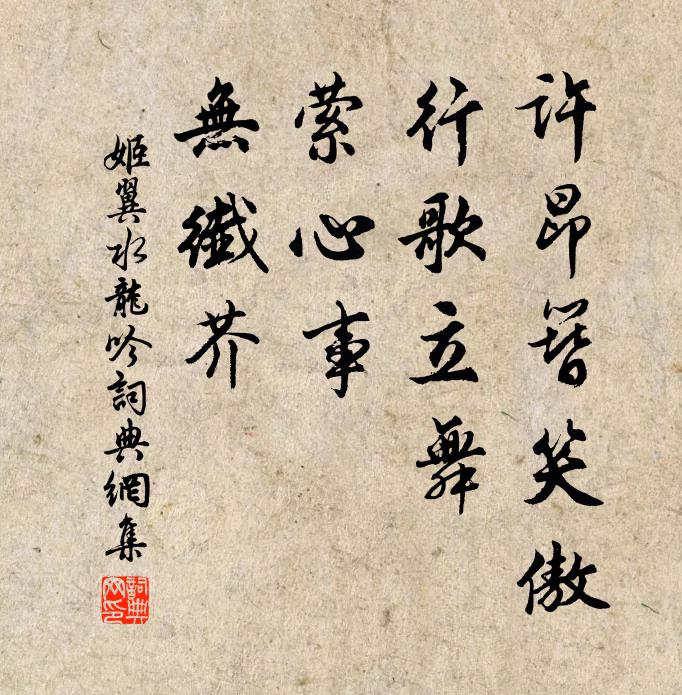 許昂簪笑傲
行歌立舞
縈心事
無纖芥
姬翼水龍吟詞典網集
詞典網印